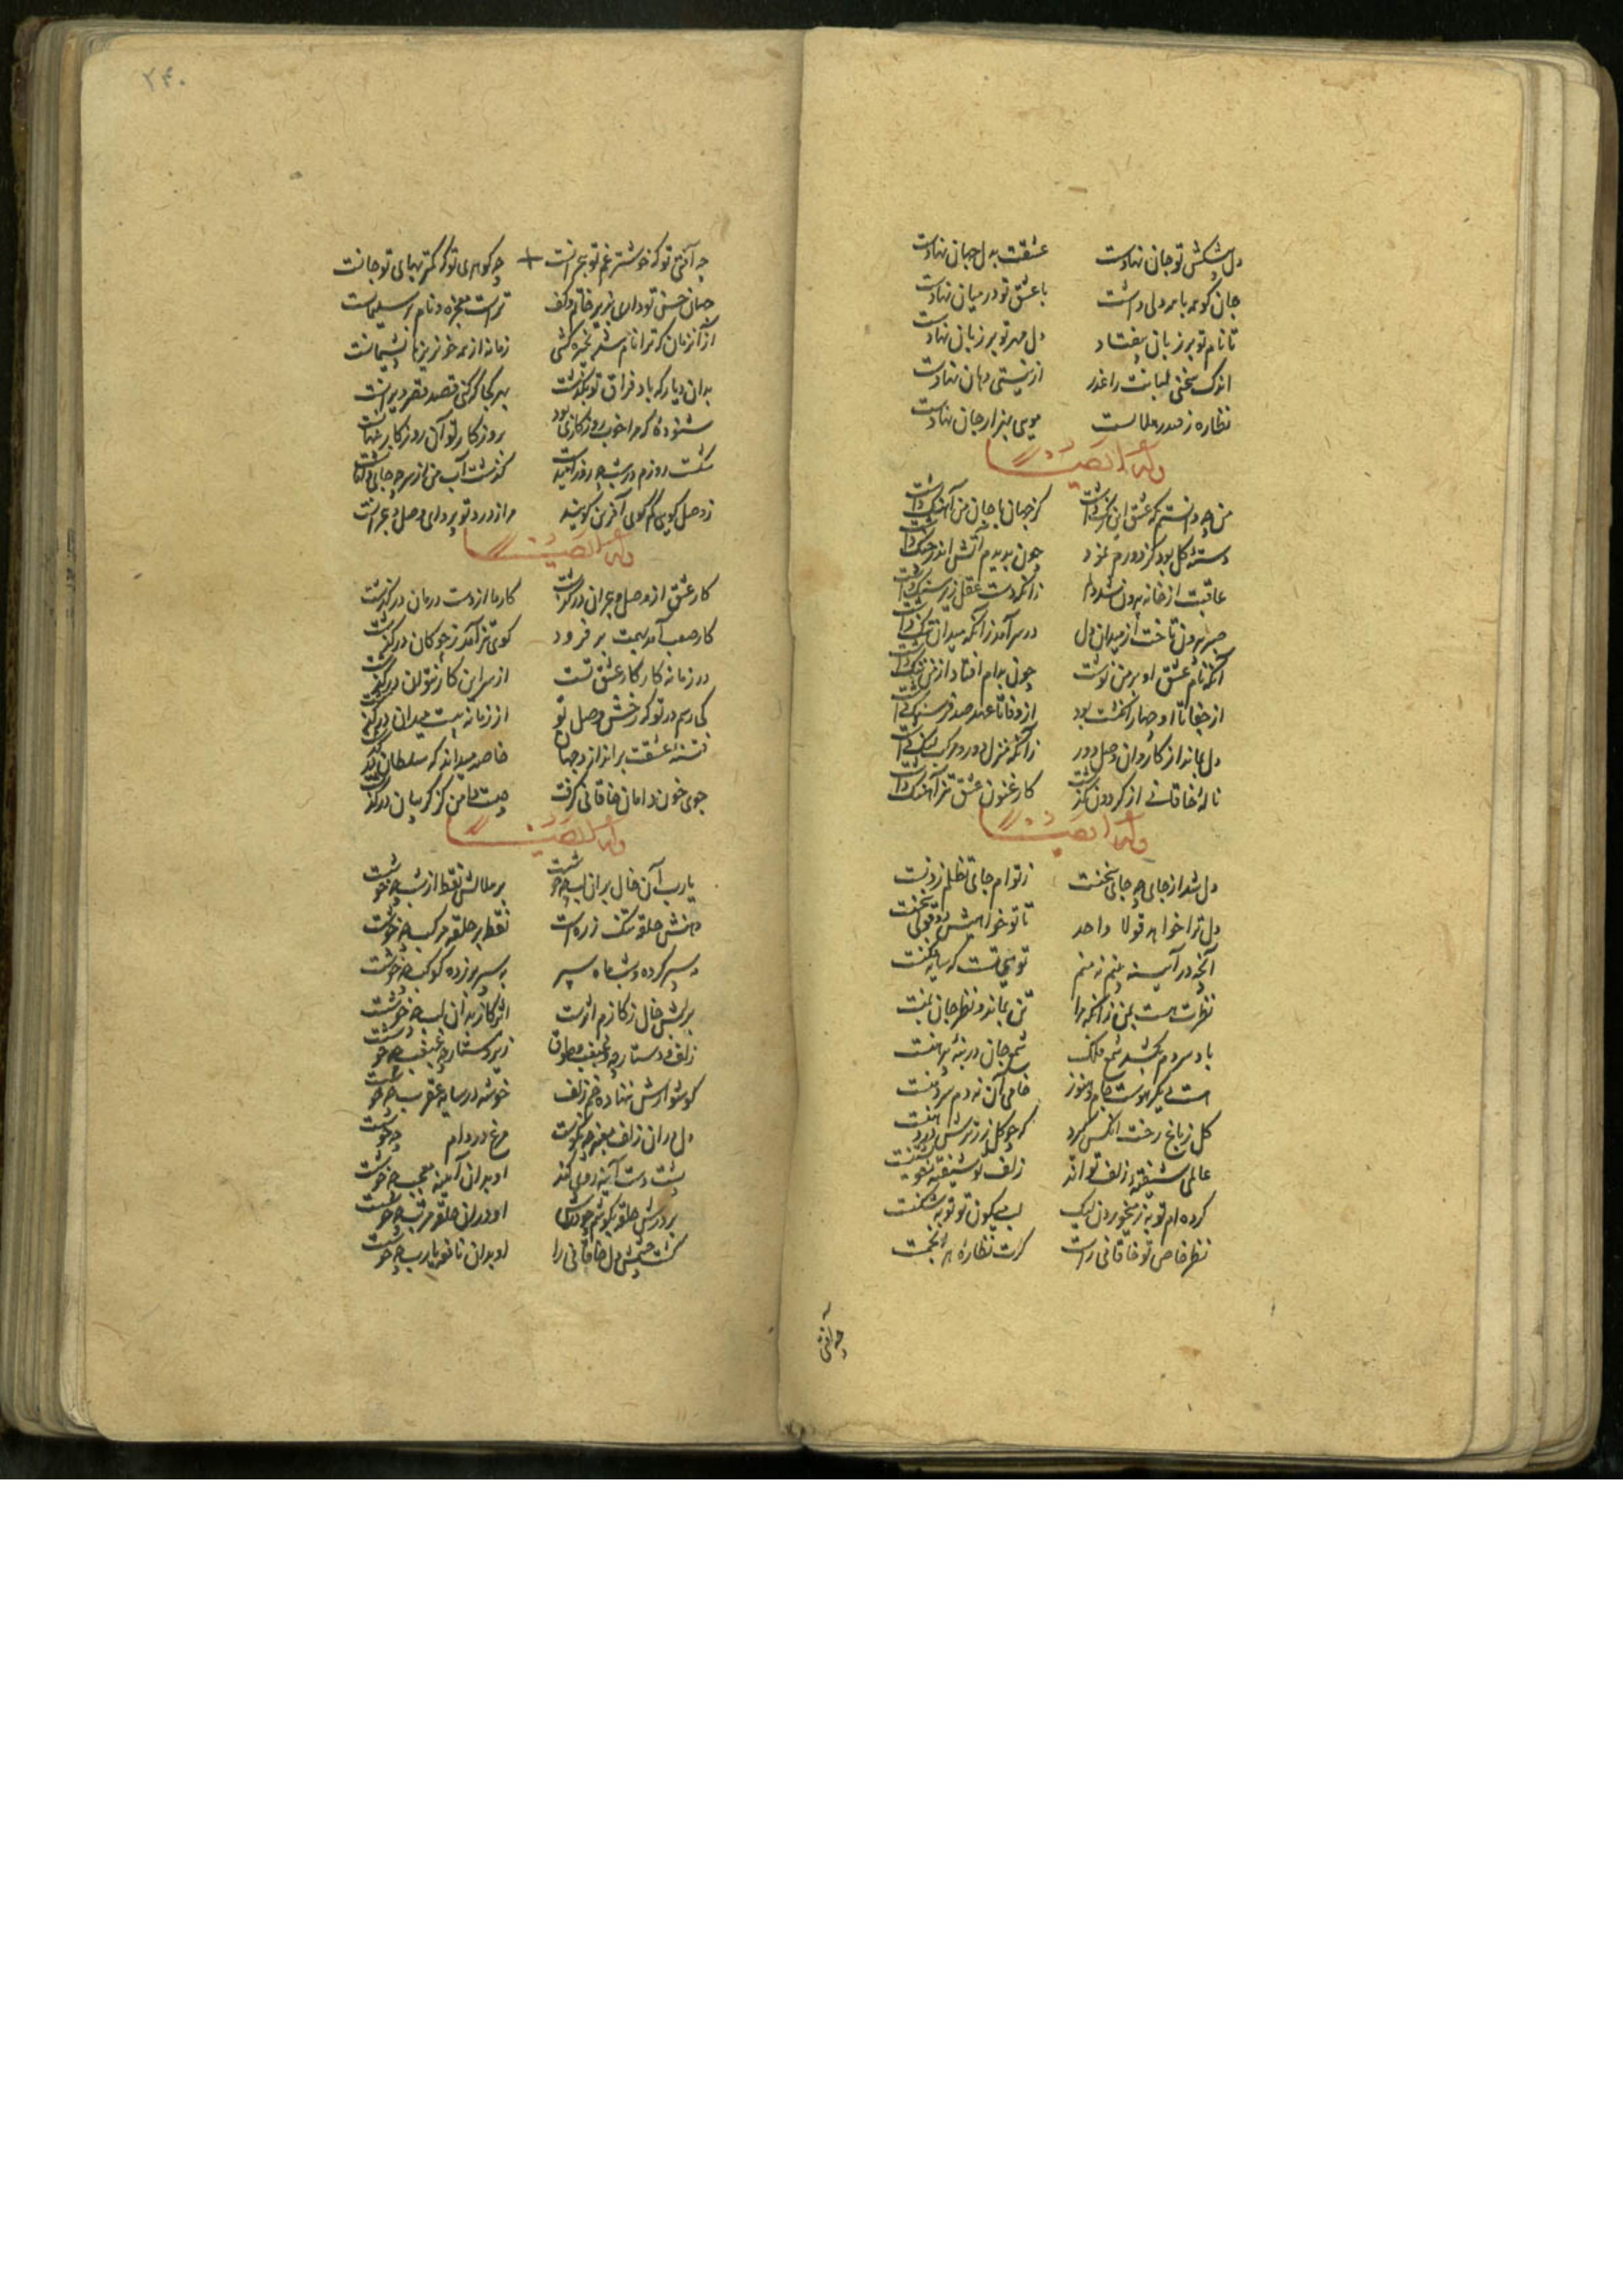 دل پیشکش تو جان نهادست عشقت بدل جهان نهادست
جان گر همه با همه دلی داشت با عشق تو در میان نهادست
تا نام تو بر زبان بیفتاد دل مهر تو بر زبان نهادست
اندک سخنی لبانت را عذر از نیستی دهان نهادست
نظاره ز موی بهزار جان نهادست
وله ایضا
من چه دانستم که عشق این رنگ داشت کز جهان با جان من آهنگ داشت
دسته گل بود کز دورم نمود چون بدیدم آتش اندر چنگ داشت
عاقبت از خانه بیرون شد دلم زانکه دست عقل زیر سنگ داشت
صبر بیرون تاخت از میدان دل در سر آمد زانکه میدان تنگ داشت
آنکه نام عشق او بر من نوشت چون بدام افتاد از من ننگ داشت
از جفا تا او چهار انگشت بود از وفا تا عهد صد فرسنگ داشت
دل بماند از کاروان وصل دور زانکه منزل دور و مرکب لنگ داشت
ناله خاقانی از گردون گذشت کارغنون عشق تیز آهنگ داشت
وله ایضا
دل شد از جای چه جای سخنست ز توام جای تظلم زدنست
دل ترا خواهد قولا واحد تا تو خواهیش دو قولی سخنست
آنچه در آیینه بینم نه منم توییی تست که سایه فکنست
نظرت هست بمن زانکه مرا تن نماند و نظر جان بتنست
باد سردم بکشد شمع فلک شمع جان در بنه پیراهنست
هست یک موست بجام و هنوز خامی آن نه دم سرد منست
گل ز باغ رخت آنکس که چو گل زر ترش در دهنست
عالمی شیفته زلف تو اند زلف تو شیفته خویشتنست
کرده ام توبه ز می خوردن لیک لب میگون تو توبه شکنست
نظر خاص تو خاقانی راست گرت نظاره هر انجمست
چه آفتی
۲۴۰
چه آفتی تو که خوشتر غم تو بحرانست چه گوهری تو که کمتر بهای تو جانست
جهان حسن تو داری بزیر خاتم و کف تراست معجزه و نام بر سلیمانست
از آن زمان که ترا نام شد بخیره کشی زمانه از همه خونریزها پشیمانست
بدان دیار که باد فراق تو بگذشت بهر کجا که کنی قصد قصر ویرانست
شنوده که مرا خوب روزگاری بود بروزگار تو آن روزگار پنهانست
گذشت آب من از سر چه جای دامانست
ز وصل گویی کم گوی آخرین گویند مرا ز درد تو پروای وصل و هجرانست
وله ایضا
کار عشق از وصل و هجران درگذشت کار ما از دست درمان درگذشت
کار صعب آمد بهمت بر فزود گوی تیز آمد ز چوگان درگذشت
در زمانه کار کار عشق تست از سر این کار نتوان درگذشت
کی رسم در تو که رخش وصل تو از زمانه بیست میدان درگذشت
فتنه عشقت بر انداز از جهان خاصه میداند که سلطان درگذشت
جوی خون دامان خاقانی گرفت چیست دامن کز گریبان درگذشت
وله ایضا
یارب آن خال بر آن لب چه خوشست بر هلالش نقط از شب چه خوشست
دهنش حلقه تنگ زره است نقطه بر حلقه مرکب چه خوشست
مه سپر کرده و شب ماه سپر بر سپر بر زده کوکب چه خوشست
بر لبش خال ز گازم اثرست اثر گاز بر آن لب چه خوشست
زلف و دستارچه و غبغب و طوق زیر دستارچه غبغب چه خوشست
گوشوارش بنهاده خم زلف خوشه در سایه عقرب چه خوشست
دل در آن زلف معنبر چه نکوست مرغ در دام چه خوشست
پشت دست آینه روی کند او بدان آینه معجب چه خوشست
بر درش حلقه بگوشم چو درش او در آن حلقه مرتب چه خوشست
گشت چشمش دل خاقانی را او بدان ناخنه یارب چه خوشست